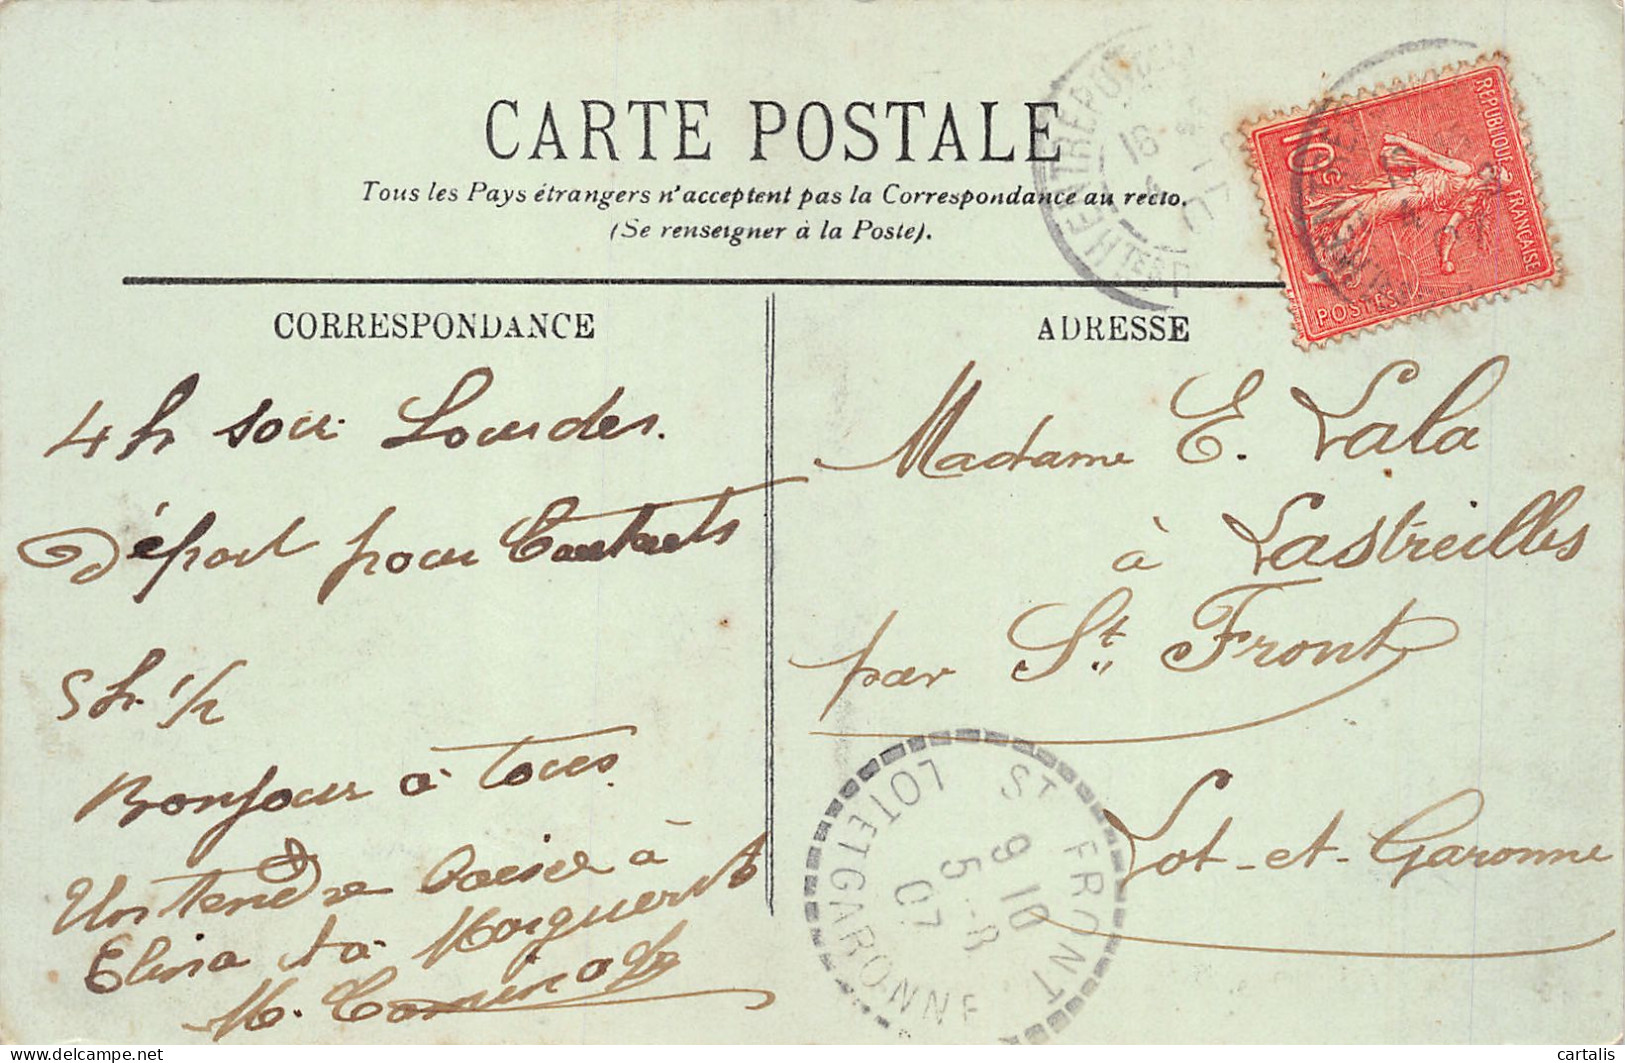 CARTE POSTALE
Tous les Pays étrangers n'acceptent pas la Correspondance au recto.
(Se renseigner à la Poste).
RÉPUBLIQUE FRANÇAISE
10c
POSTES
CORRESPONDANCE
4h soir Lourdes.
Départ pour
5h 1/2
Bonjour à tous
Un tendre baiser à
Elina ta Marguerite
M.
ADRESSE
Madame E. Lala
à Lastreilles
par St Front
Lot-et-Garonne
ST FRONT
9 10
5-8
07
LOT ET GARONNE
cartalis